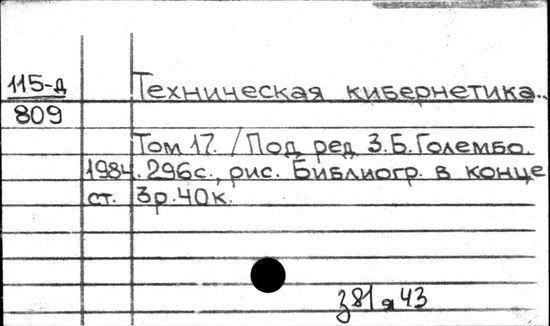 115-д Техническая кибернетика..
809
Том 17. / Под ред З.Б.Голембо.
1984. 296с., рис. Библиогр. в конце
ст. 3р.40к.
з81я43